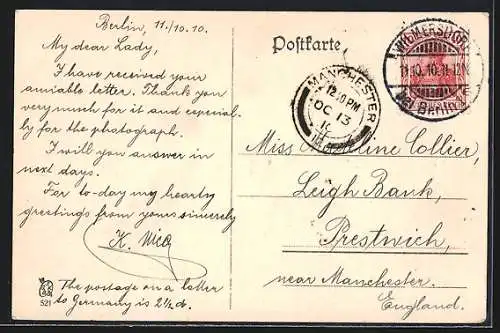 Berlin, 11./10.10.
My dear Lady,
I have received your
amiable letter. Thank you
very much for it and especial-
ly for the photograph.
I will you answer in
next days.
For to-day my hearty
greetings from yours sincerely
K.
The postage on a letter
to Germany is 2½ d.
521
Postkarte
MANCHESTER
12.30 PM
OC 13
10
WILMERSDORF
11.10.10.11-12N
Berlin
Miss Collier,
Leigh Bank,
Prestwich,
near Manchester.
England.